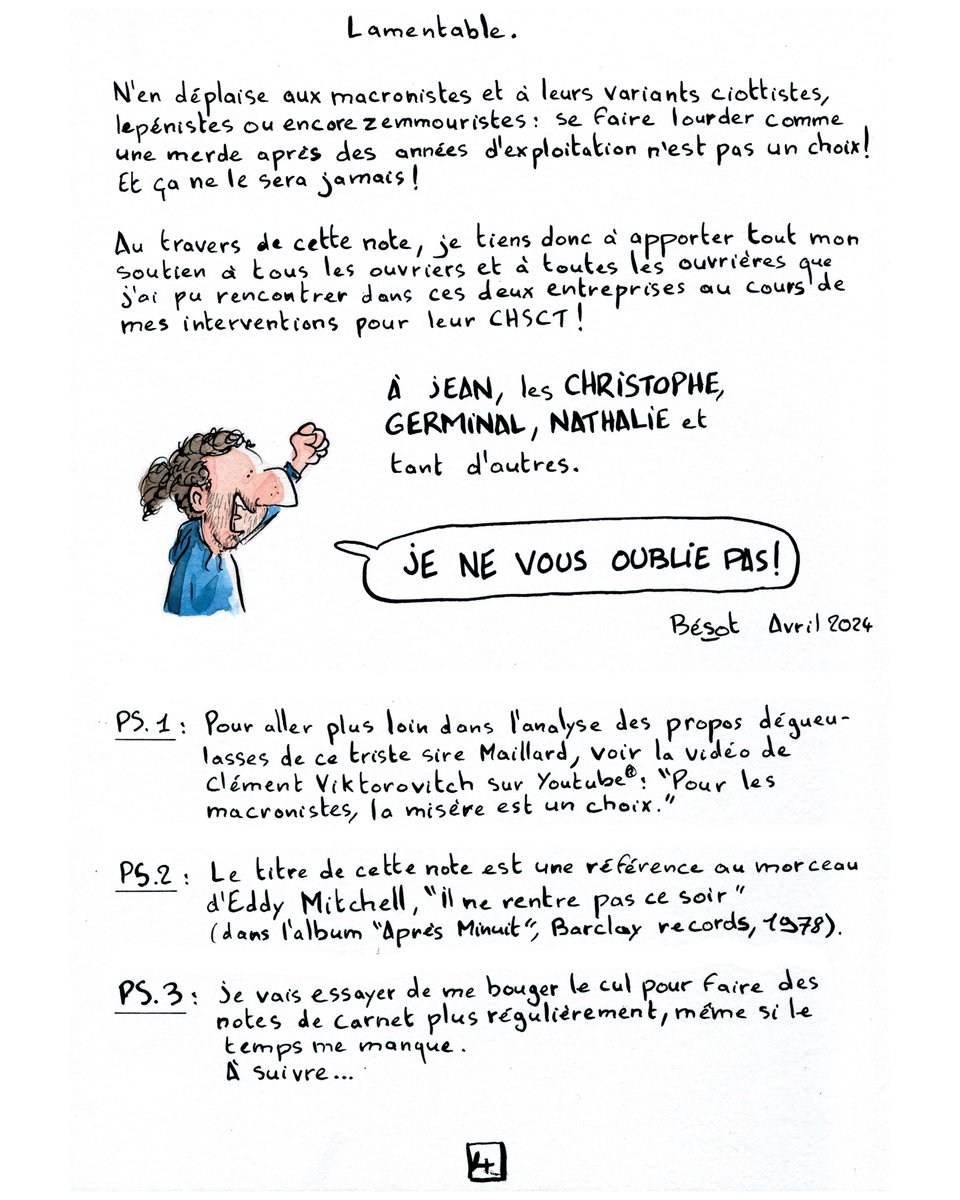 Lamentable.
N'en déplaise aux macronistes et à leurs variants ciottistes,
lepénistes ou encore zemmouristes : se faire lourder comme
une merde après des années d'exploitation n'est pas un choix !
Et ça ne le sera jamais !
Au travers de cette note, je tiens donc à apporter tout mon
soutien à tous les ouvriers et à toutes les ouvrières que
j'ai pu rencontrer dans ces deux entreprises au cours de
mes interventions pour leur CHSCT !
À JEAN, les CHRISTOPHE,
GERMINAL, NATHALIE et
tant d'autres.
JE NE VOUS OUBLIE PAS !
Bésot Avril 2024
PS.1 : Pour aller plus loin dans l'analyse des propos dégueu-
lasses de ce triste sire Maillard, voir la vidéo de
Clément Viktorovitch sur Youtube® : "Pour les
macronistes, la misère est un choix."
PS.2 : Le titre de cette note est une référence au morceau
d'Eddy Mitchell, "il ne rentre pas ce soir"
(dans l'album "Après Minuit", Barclay records, 1978).
PS.3 : je vais essayer de me bouger le cul pour faire des
notes de carnet plus régulièrement, même si le
temps me manque.
À suivre...
4